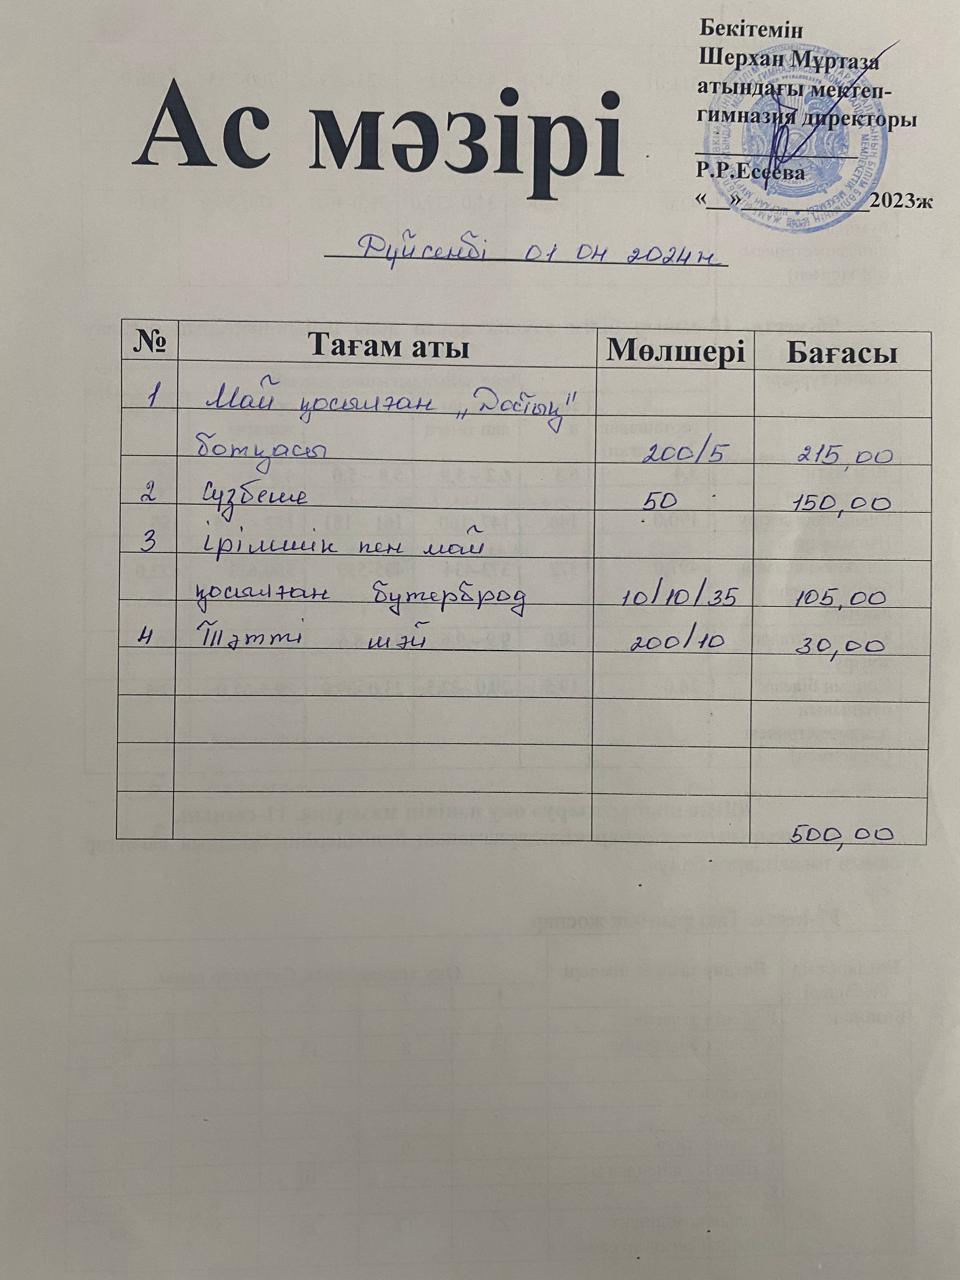 Бекітемін
Шерхан Мұртаза
атындағы мектеп-
гимназия директоры
Р.Р.Есеева
«__»___________2023ж
Ас мәзірі
Дүйсенбі 01 04 2024ж
№ Тағам аты Мөлшері Бағасы
1 Май қосылған „Достық"
ботқасы 200/5 215,00
2 Сүзбеше 50 150,00
3 Ірімшік пен май
қосылған бутерброд 10/10/35 105,00
4 Тәтті шәй 200/10 30,00
500,00